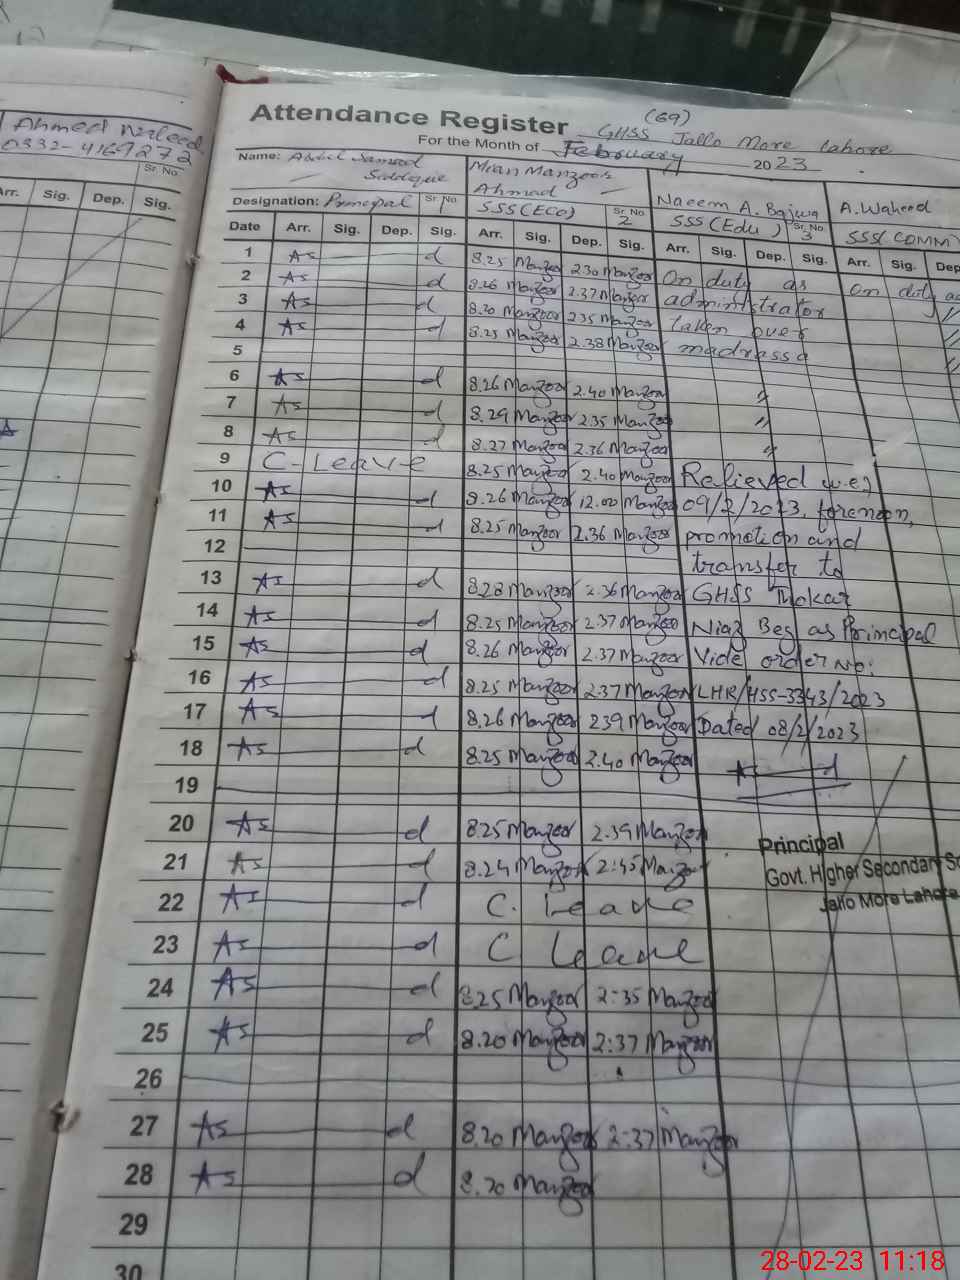 Ahmed
0332-4169272
Sr. No.
Arr. Sig. Dep. Sig.
(69)
Attendance Register GHSS Jallo More Lahore
For the Month of February 2023
Name: Abdul Samad
Siddique
Mian Manzoor
Ahmad
Naeem A. Bajwa
A. Waheed
Designation: Principal Sr. No. 1
SSS (Eco) Sr. No. 2
SSS (Edu) Sr. No. 3
SSS (COMM)
Date Arr. Sig. Dep. Sig. Arr. Sig. Dep. Sig. Arr. Sig. Dep. Sig. Arr. Sig. Dep
1 As d 8.25 Manzoor 2.30 Manzoor On duty as on duty as
2 As d 8.26 Manzoor 2.37 Manzoor administrator
3 As d 8.20 Manzoor 2.35 Manzoor taken over
4 As d 8.25 Manzoor 2.38 Manzoor madrassa
5
6 As d 8.26 Manzoor 2.40 Manzoor "
7 As d 8.29 Manzoor 2.35 Manzoor "
8 As d 8.27 Manzoor 2.36 Manzoor "
9 C-Leave 8.25 Manzoor 2.40 Manzoor Relieved w.e.f
10 As d 8.26 Manzoor 12.00 Manzoor 09/2/2023, forenoon,
11 As d 8.25 Manzoor 2.36 Manzoor promotion and
12 transfer to
13 As d 8.28 Manzoor 2.36 Manzoor GHSS Mokar
14 As d 8.25 Manzoor 2.37 Manzoor Niaz Beg as Principal
15 As d 8.26 Manzoor 2.37 Manzoor Vide order No:
16 As d 8.25 Manzoor 2.37 Manzoor LHR/HSS-3343/2023
17 As d 8.26 Manzoor 2.39 Manzoor Dated 08/2/2023
18 As d 8.25 Manzoor 2.40 Manzoor As d
19
20 As d 8.25 Manzoor 2.39 Manzoor
Principal
21 As d 8.24 Manzoor 2:45 Manzoor
Govt. Higher Secondary Sc
22 As d C. Leave
Jallo More Lahore
23 As d C Leave
24 As d 8.25 Manzoor 2:35 Manzoor
25 As d 8.20 Manzoor 2:37 Manzoor
26
27 As d 8.20 Manzoor 2:37 Manzoor
28 As d 8.20 Manzoor
29
30
28-02-23 11:18